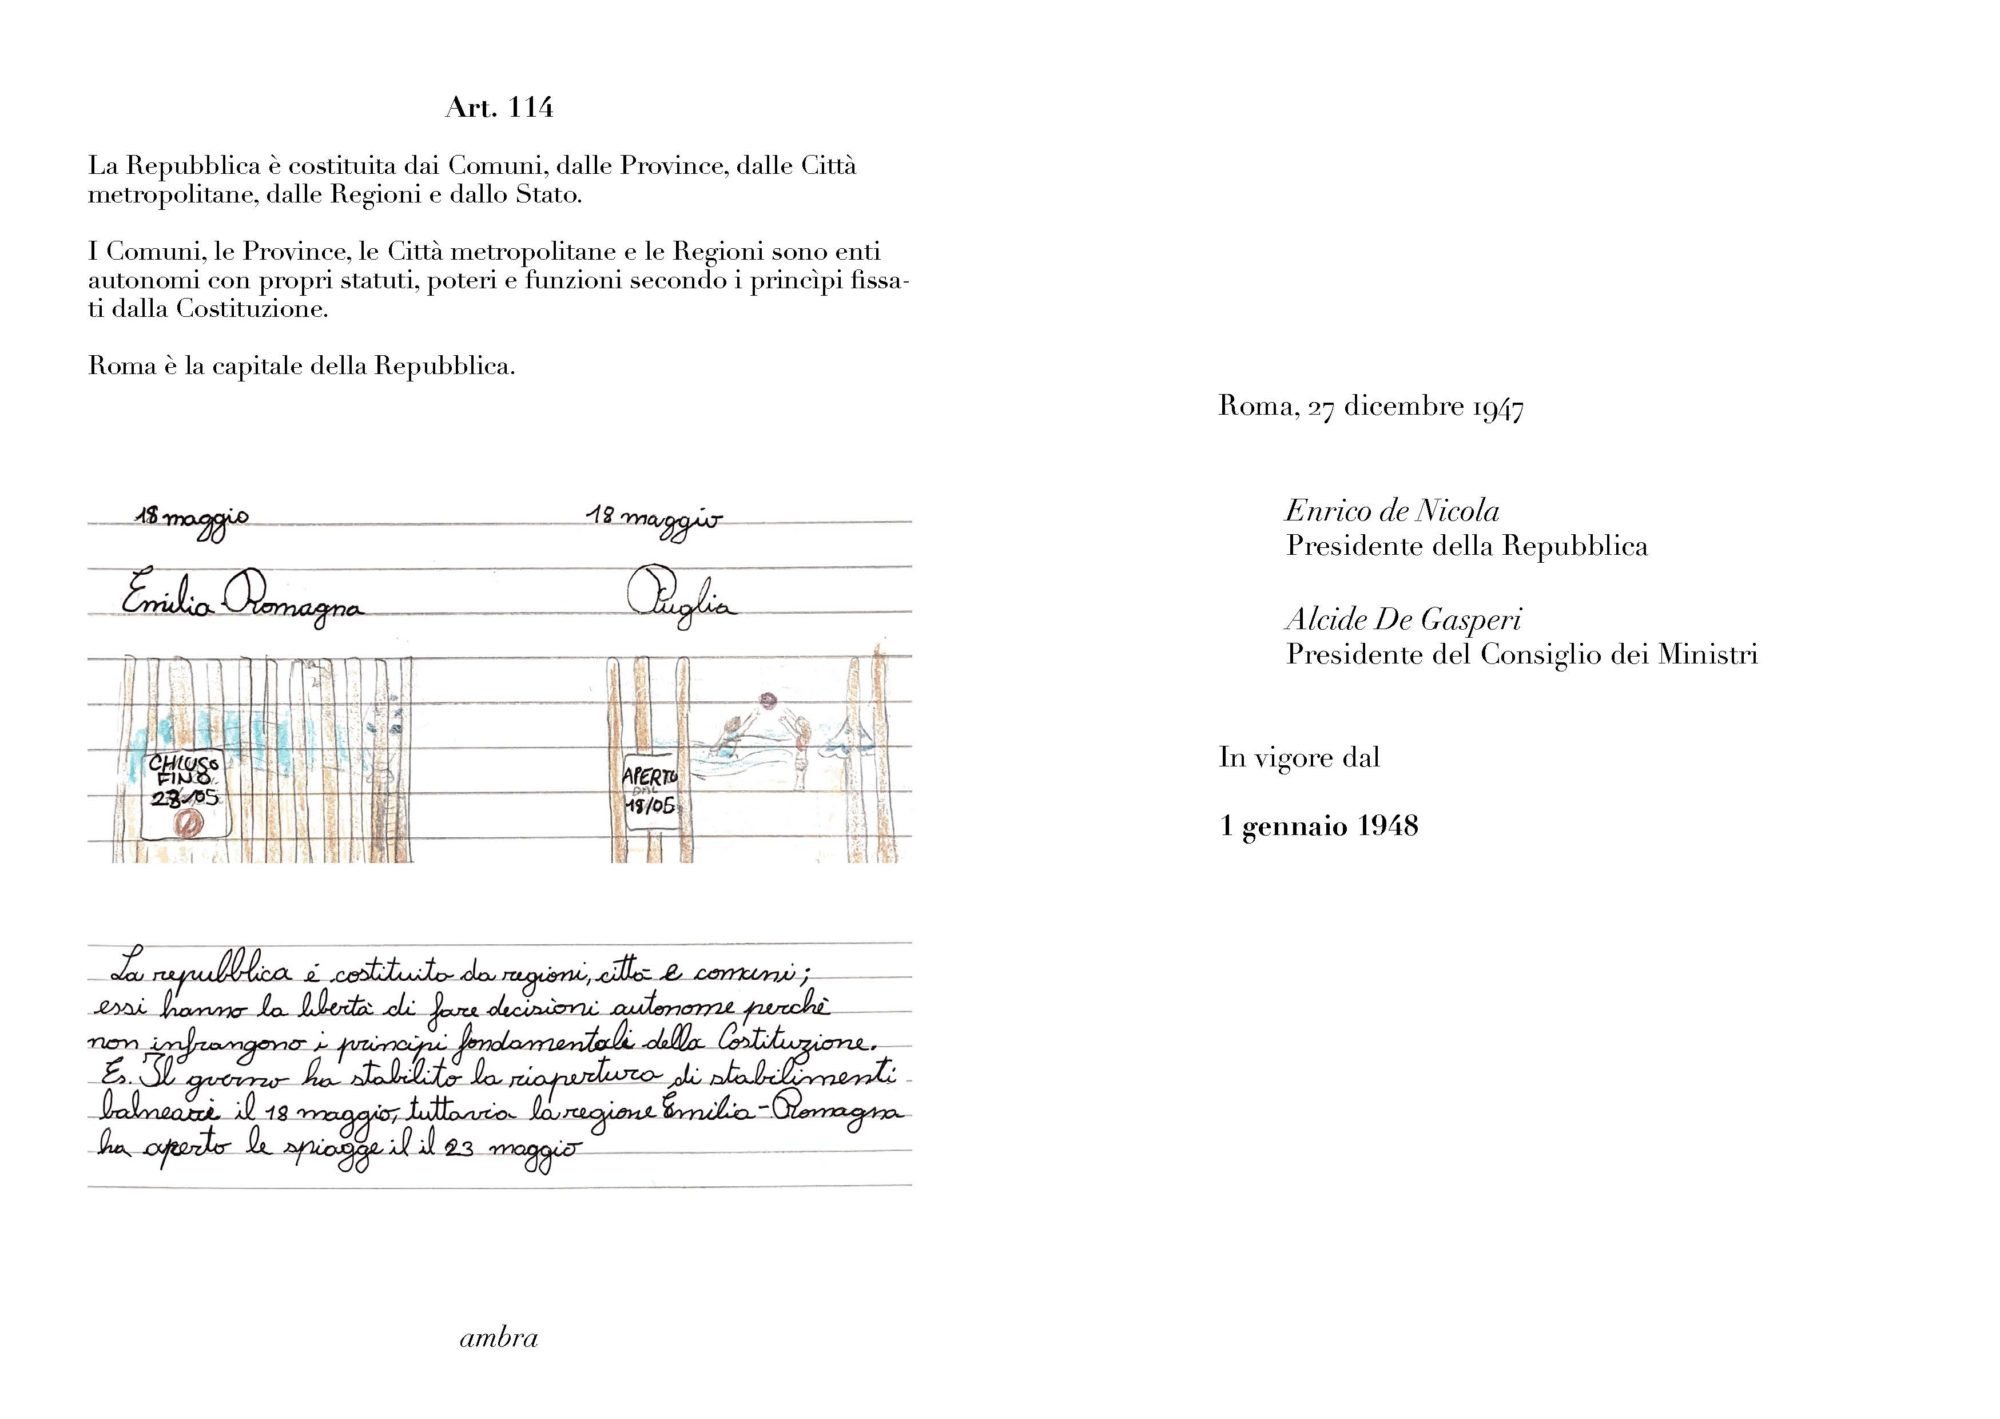 Art. 114
La Repubblica è costituita dai Comuni, dalle Province, dalle Città
metropolitane, dalle Regioni e dallo Stato.
I Comuni, le Province, le Città metropolitane e le Regioni sono enti
autonomi con propri statuti, poteri e funzioni secondo i princìpi fissa-
ti dalla Costituzione.
Roma è la capitale della Repubblica.
18 maggio
18 maggio
Emilia-Romagna
Puglia
CHIUSO
FINO
23/05
APERTO
DAL
18/05
La repubblica é costituita da regioni, città e comuni;
essi hanno la libertà di fare decisioni autonome perchè
non infrangono i principi fondamentali della Costituzione.
Es. Il governo ha stabilito la riapertura di stabilimenti
balneari il 18 maggio, tuttavia la regione Emilia-Romagna
ha aperto le spiagge il il 23 maggio
ambra
Roma, 27 dicembre 1947
Enrico de Nicola
Presidente della Repubblica
Alcide De Gasperi
Presidente del Consiglio dei Ministri
In vigore dal
1 gennaio 1948